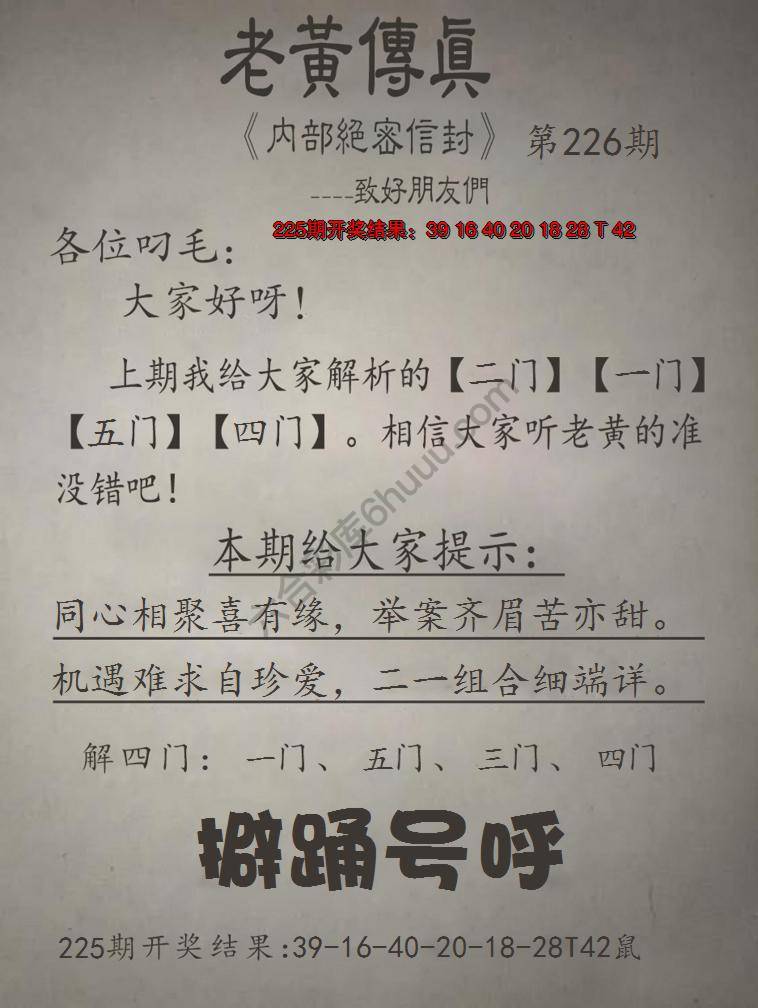 老黃傳眞
《内部絕密信封》 第226期
----致好朋友們
225期开奖结果：39 16 40 20 18 28 T 42
各位叼毛：
大家好呀！
上期我给大家解析的【二门】【一门】
【五门】【四门】。相信大家听老黄的准
没错吧！
本期给大家提示：
同心相聚喜有缘，举案齐眉苦亦甜。
机遇难求自珍爱，二一组合细端详。
解四门： 一门、 五门、 三门、 四门
擗踊号呼
225期开奖结果:39-16-40-20-18-28T42鼠
六合彩库6huuu.com